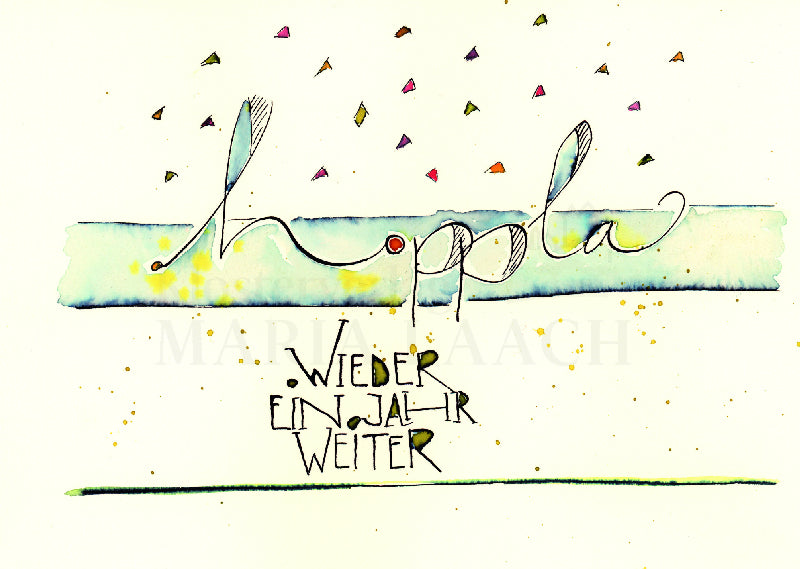 hoppla
WIEDER
EIN JAHR
WEITER
MARIA LAACH